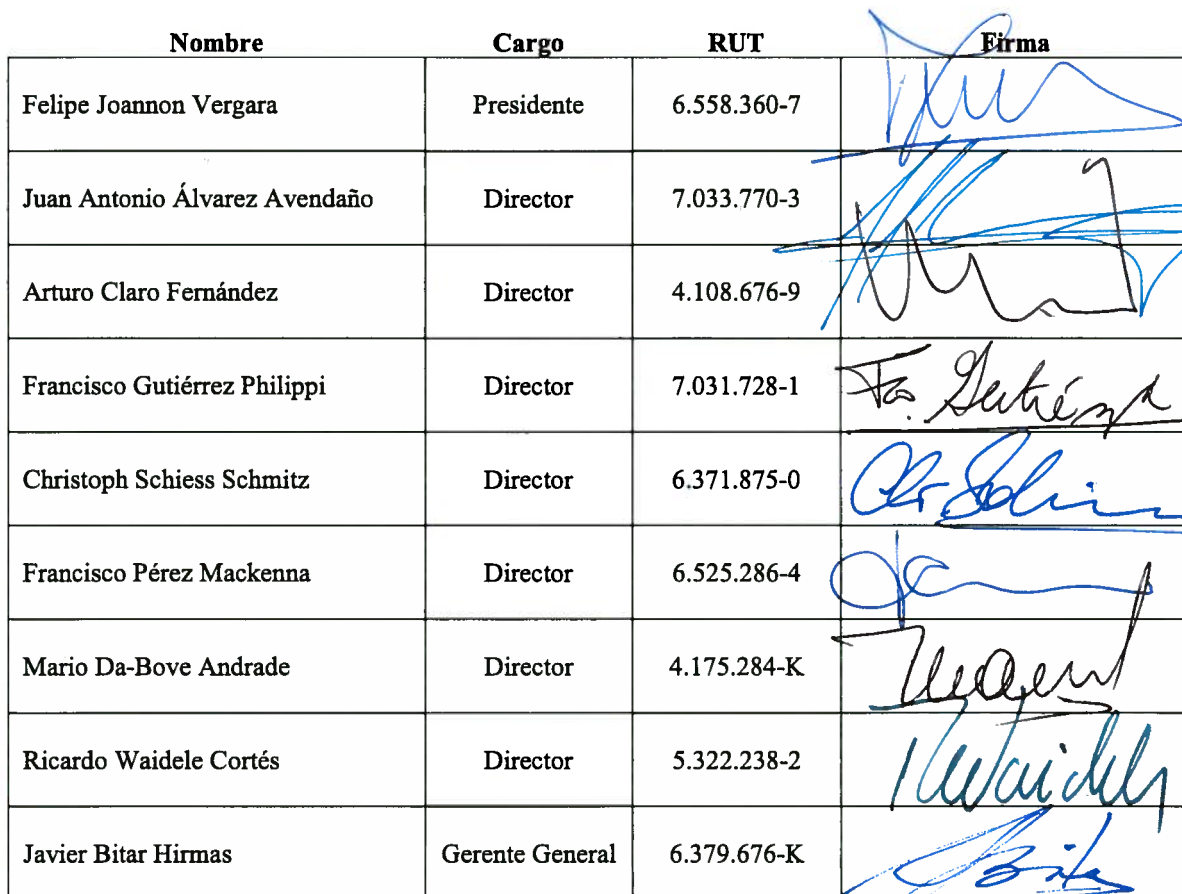 Nombre Cargo RUT Firma
Felipe Joannon Vergara Presidente 6.558.360-7
Juan Antonio Álvarez Avendaño Director 7.033.770-3
Arturo Claro Fernández Director 4.108.676-9
Francisco Gutiérrez Philippi Director 7.031.728-1
Christoph Schiess Schmitz Director 6.371.875-0
Francisco Pérez Mackenna Director 6.525.286-4
Mario Da-Bove Andrade Director 4.175.284-K
Ricardo Waidele Cortés Director 5.322.238-2
Javier Bitar Hirmas Gerente General 6.379.676-K